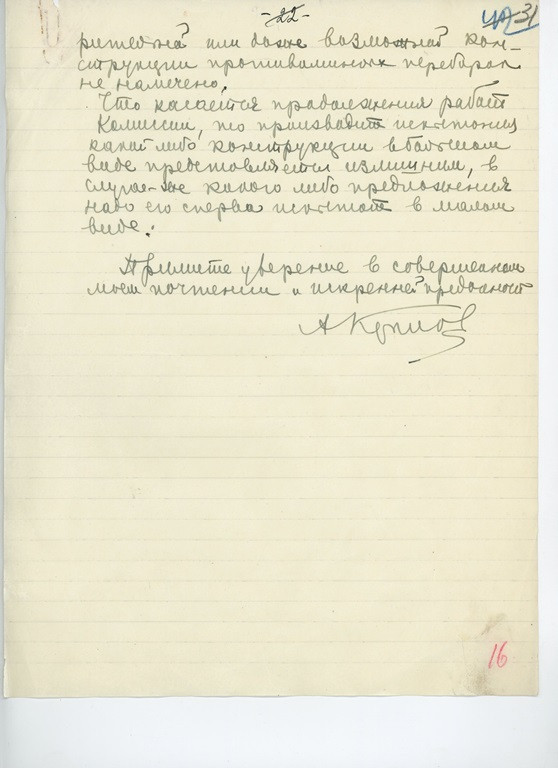 -22-
31
рительной или даже возможной кон-
струкции противоминных переборок
не намечено.
Что касается продолжения работ
Комиссии, то производить испытания
какой либо конструкции в большом
виде представляется излишним, в
случае-же какого либо предложения
надо его сперва испытать в малом
виде.
Примите уверение в совершенном
моем почтении и искренней преданности
АКрылов
16